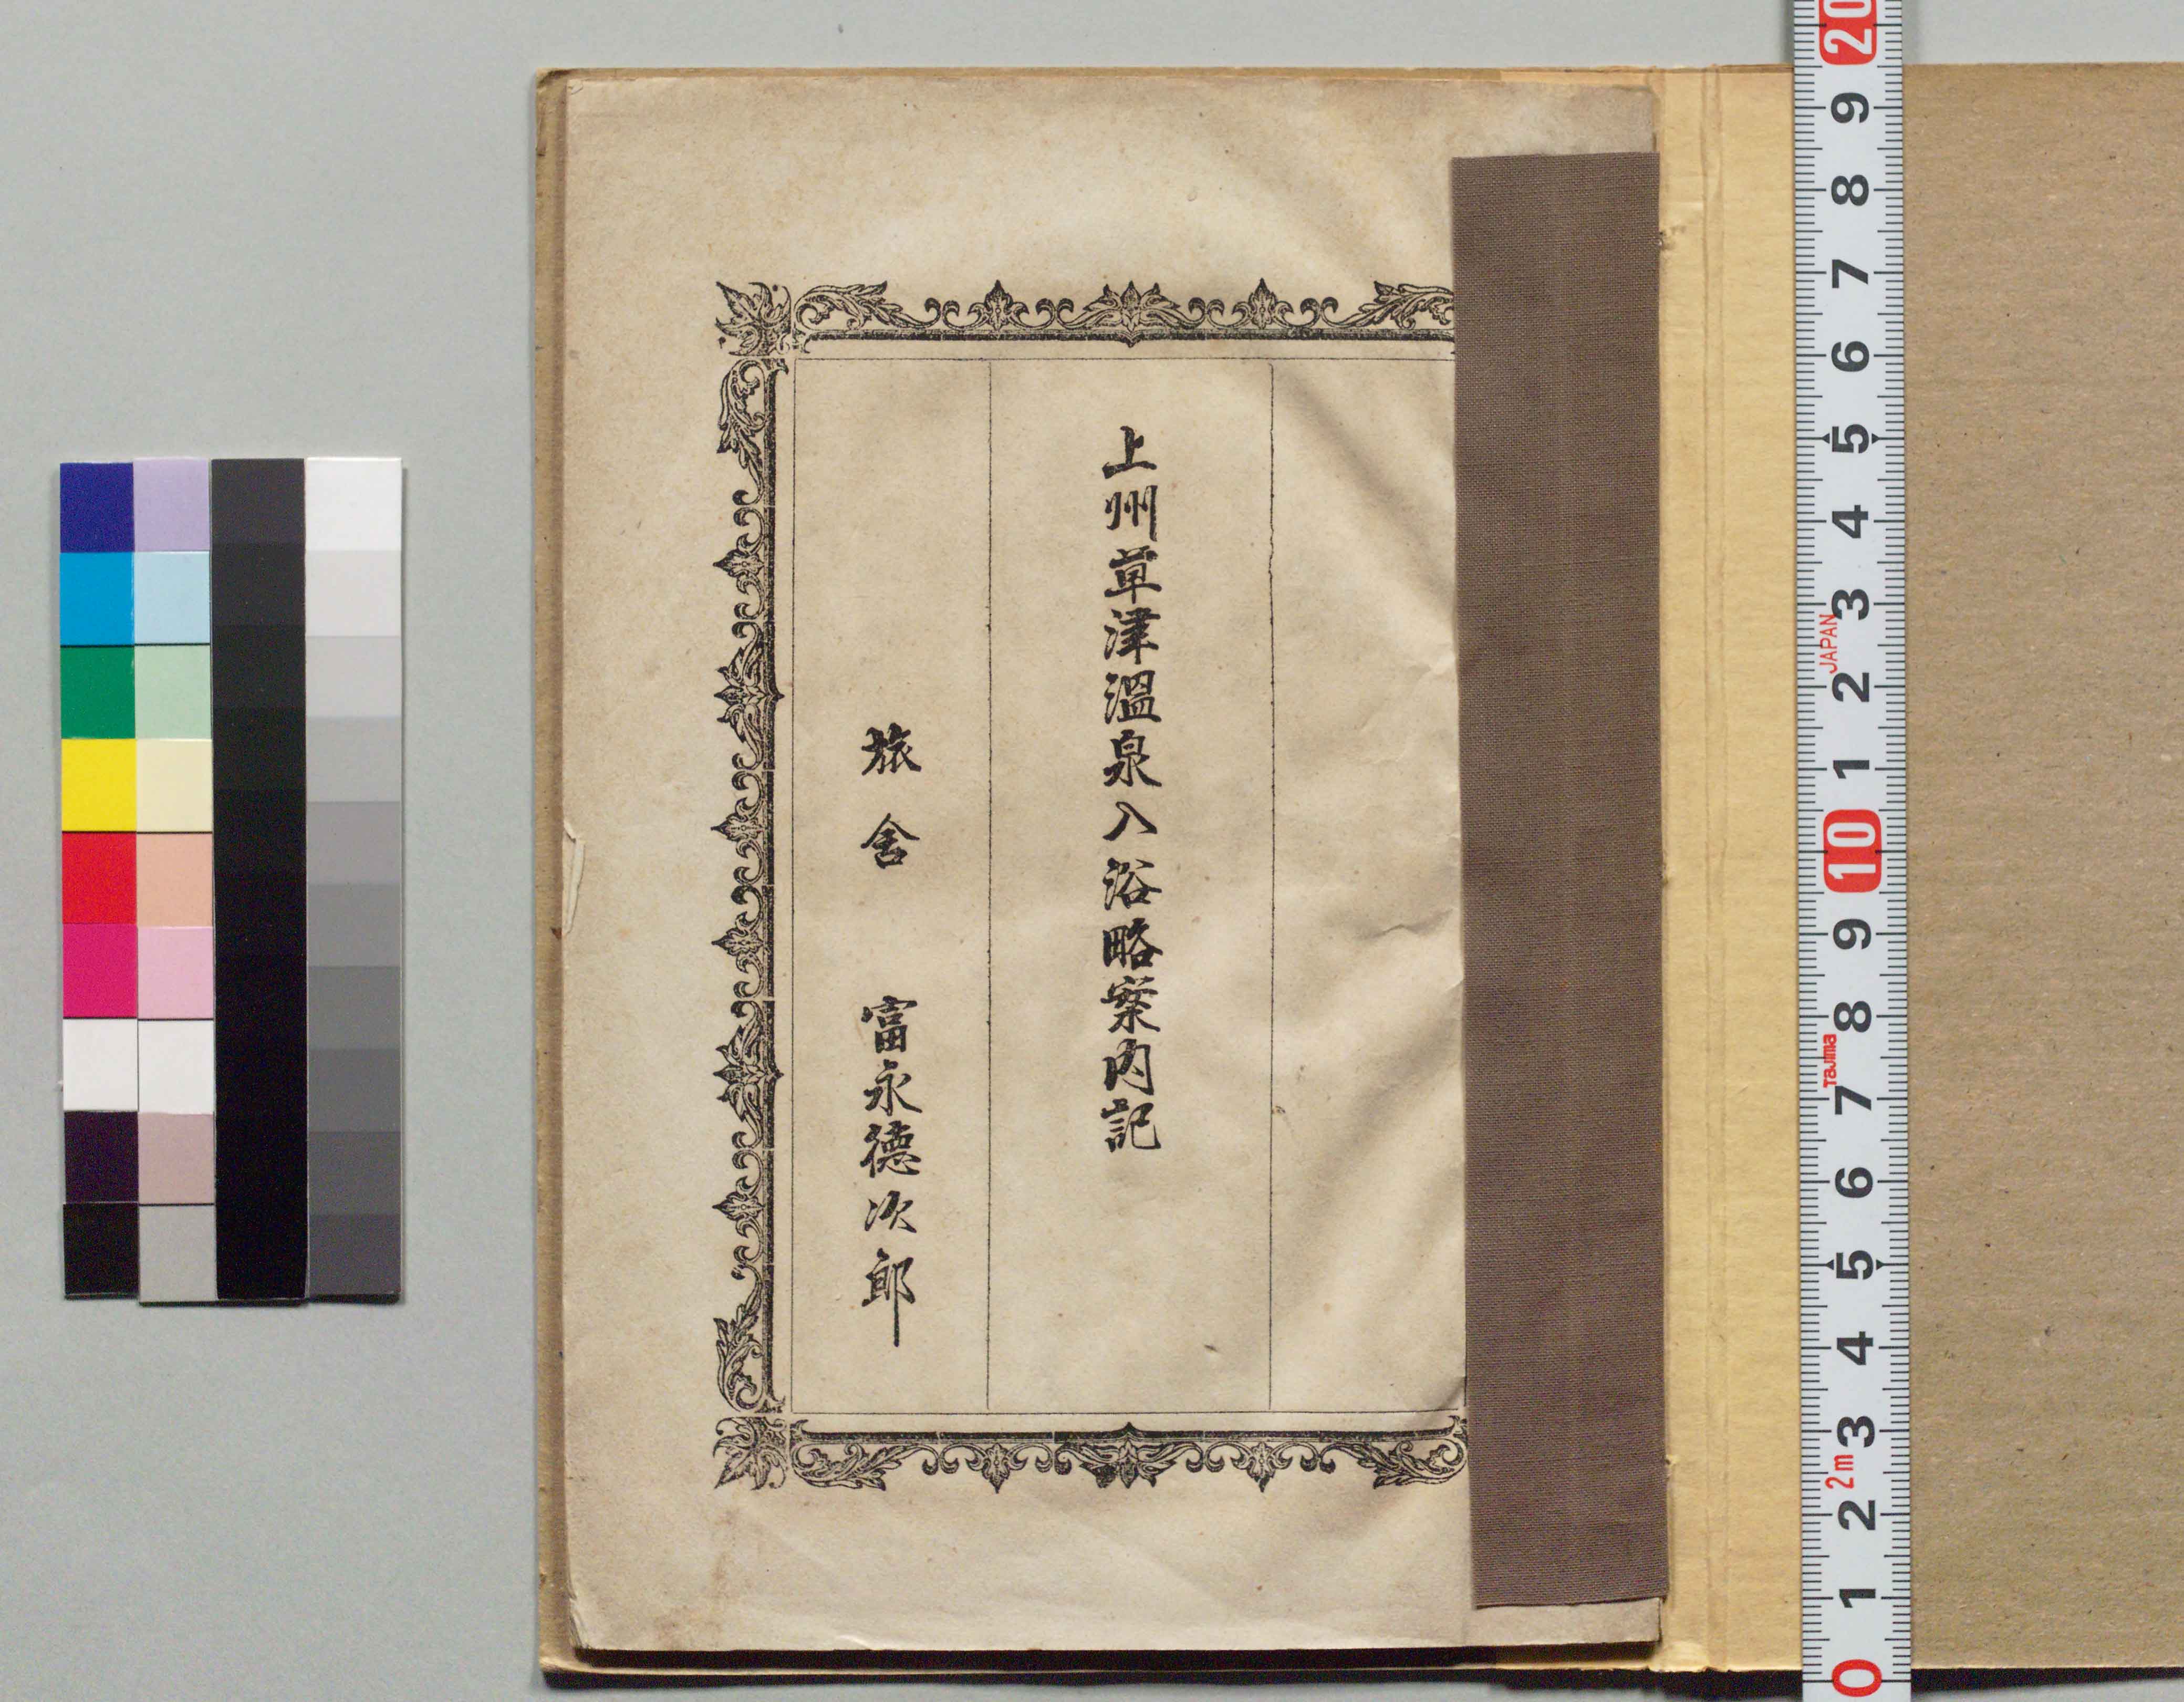 上州草津溫泉入浴略案內記
旅舍 富永德次郎
20
9
8
7
6
5
4
3
JAPAN
2
1
10
9
8
Tajima
7
6
5
4
3
2m
2
1
0